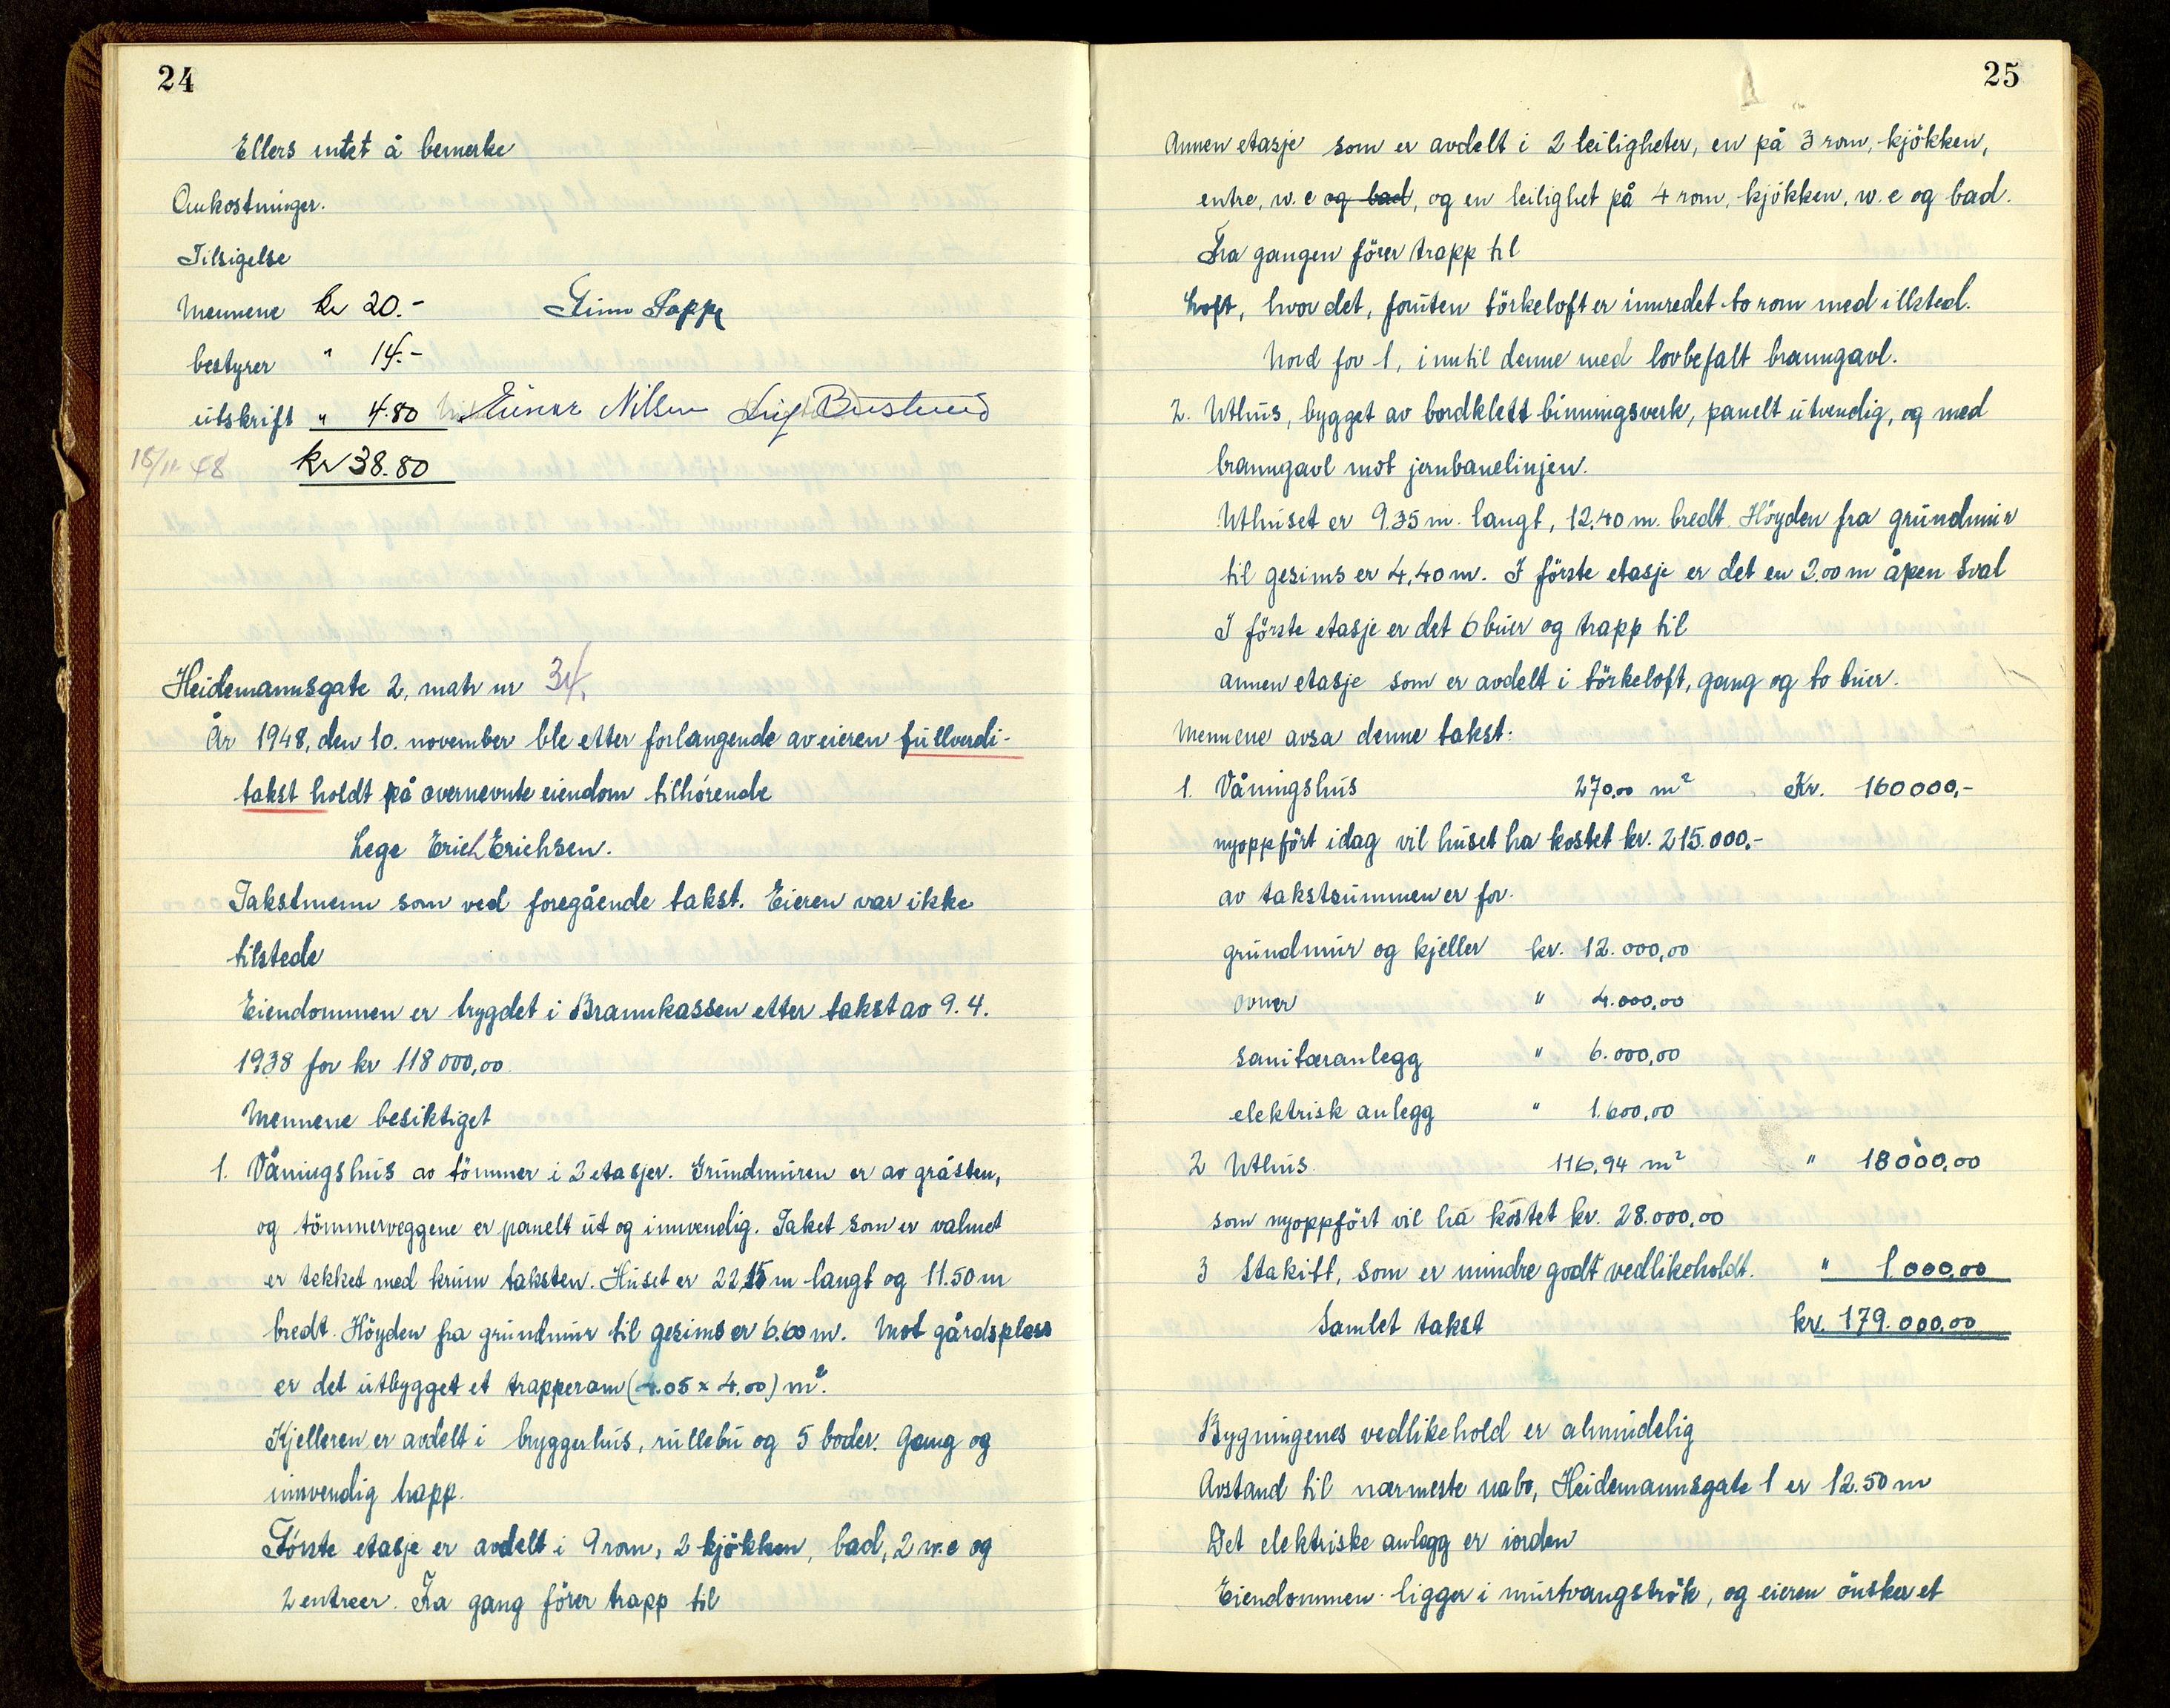 24
Ellers intet å bemerke
Omkostninger.
Tilsigelse
Mennene kr 20.-
Finn Poppe
bestyrer " 14.-
utskrift " 4.80 Einar Nilsen
18/11-48 kr 38.80
Heidemannsgate 2, matr nr 34.
År 1948, den 10. november ble etter forlangende av eieren fullverdi-
takst holdt på overnevnte eiendom tilhörende
Lege Erich Erichsen.
Takstmenn som ved foregående takst. Eieren var ikke
tilstede
Eiendommen er trygdet i Brannkassen etter takst av 9.4.
1938 for kr 118 000,00
Mennene besiktiget
1. Våningshus av tömmer i 2 etasjer. Grundmuren er av gråsten,
og tömmerveggene er panelt ut og innvendig. Taket som er valmet
er tekket med krum taksten. Huset er 22,15 m langt og 11.50 m
bredt. Höyden fra grundmur til gesims er 6.60 m. Mot gårdsplass
er det utbygget et trapperom (4.05 x 4.00) m².
Kjelleren er avdelt i bryggerhus, rullebu og 5 boder. Gang og
innvendig trapp.
Förste etasje er avdelt i 9 rom, 2 kjökken, bad, 2 w.c og
2 entreer. Fra gang förer trapp til
25
Annen etasje som er avdelt i 2 leiligheter, en på 3 rom, kjökken,
entre, w.c og bad, og en leilighet på 4 rom, kjökken, w.c og bad.
Fra gangen förer trapp til
Loft, hvor det, foruten törkeloft er innredet to rom med illsted.
Nord for 1, inntil denne med lovbefalt branngavl.
2. Uthus, bygget av bordklett binningsverk, panelt utvendig, og med
branngavl mot jernbanelinjen.
Uthuset er 9.35 m. langt, 12.40 m. bredt. Höyden fra grundmur
til gesims er 4,40 m. I förste etasje er det en 2.00 m åpen sval
I förste etasje er det 6 buer og trapp til
annen etasje som er avdelt i törkeloft, gang og to buer.
Mennene avsa denne takst:
1. Våningshus 270,00 m² Kr. 160 000,-
nyoppfört idag vil huset ha kostet kr. 215.000.-
av takstsummen er for.
grundmur og kjeller kr. 12.000,00
ovner " 4.000,00
sanitæranlegg " 6.000,00
elektrisk anlegg " 1.600,00
2 Uthus. 116,94 m² " 18000,00
som nyoppfört vil ha kostet kr. 28.000,00
3 Stakitt, som er mindre godt vedlikeholdt. " 1.000,00
Samlet takst kr. 179.000,00
Bygningenes vedlikehold er almindelig
Avstand til nærmeste nabo, Heidemannsgate 1 er 12.50 m
Det elektriske anlegg er iorden
Eiendommen ligger i murtvangströk, og eieren önsker et